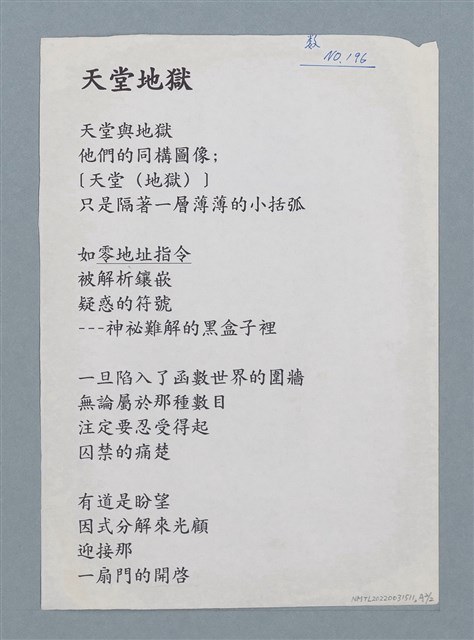 数
NO.196
天堂地獄
天堂與地獄
他們的同構圖像;
〔天堂（地獄）〕
只是隔著一層薄薄的小括弧
如零地址指令
被解析鑲嵌
疑惑的符號
---神祕難解的黑盒子裡
一旦陷入了函數世界的圍牆
無論屬於那種數目
注定要忍受得起
囚禁的痛楚
有道是盼望
因式分解來光顧
迎接那
一扇門的開啓